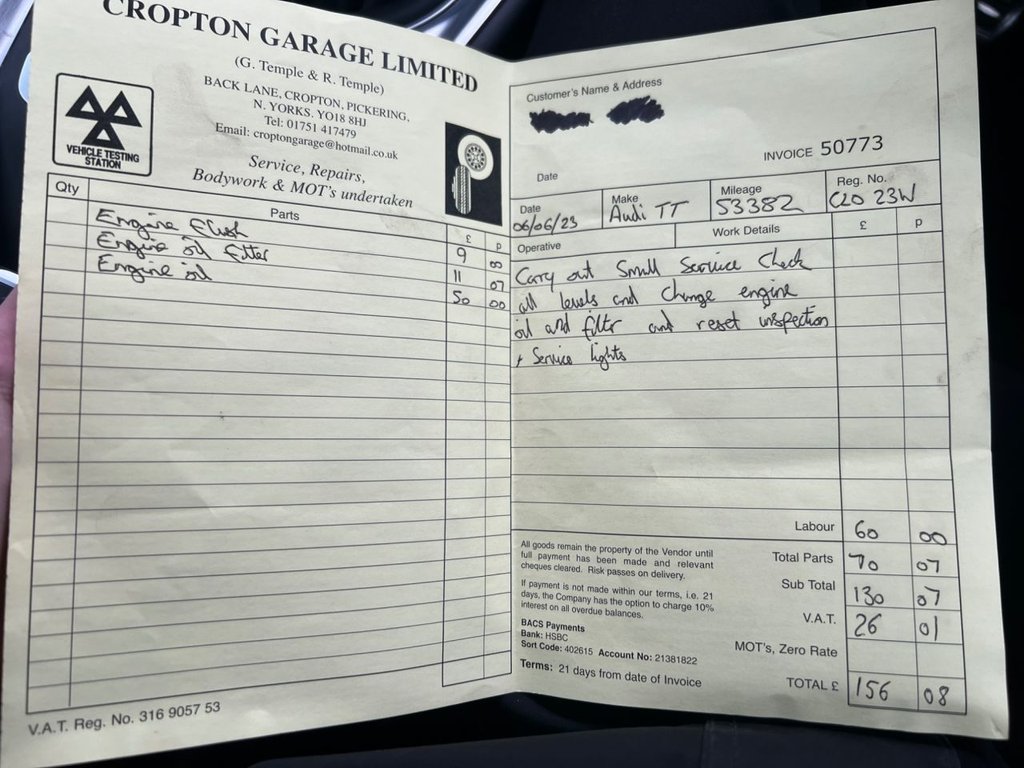 CROPTON GARAGE LIMITED
(G. Temple & R. Temple)
BACK LANE, CROPTON, PICKERING,
N. YORKS. YO18 8HJ
Tel: 01751 417479
Email: croptongarage@hotmail.co.uk
Service, Repairs,
Bodywork & MOT's undertaken
VEHICLE TESTING
STATION
Qty Parts £ P
Engine flush 9 00
Engine oil filter 11 07
Engine oil 50 00
V.A.T. Reg. No. 316 9057 53
Customer's Name & Address
INVOICE 50773
Date
Date Make Mileage Reg. No.
06/06/23 Audi TT 53382 C20 23W
Operative Work Details £ P
Carry out Small Service Check
all levels and change engine
oil and filtr and reset inspection
+ Service lights
Labour 60 00
Total Parts 70 07
Sub Total 130 07
V.A.T. 26 01
MOT's, Zero Rate
TOTAL £ 156 08
All goods remain the property of the Vendor until
full payment has been made and relevant
cheques cleared. Risk passes on delivery.
If payment is not made within our terms, i.e. 21
days, the Company has the option to charge 10%
interest on all overdue balances.
BACS Payments
Bank: HSBC
Sort Code: 402615 Account No: 21381822
Terms: 21 days from date of Invoice